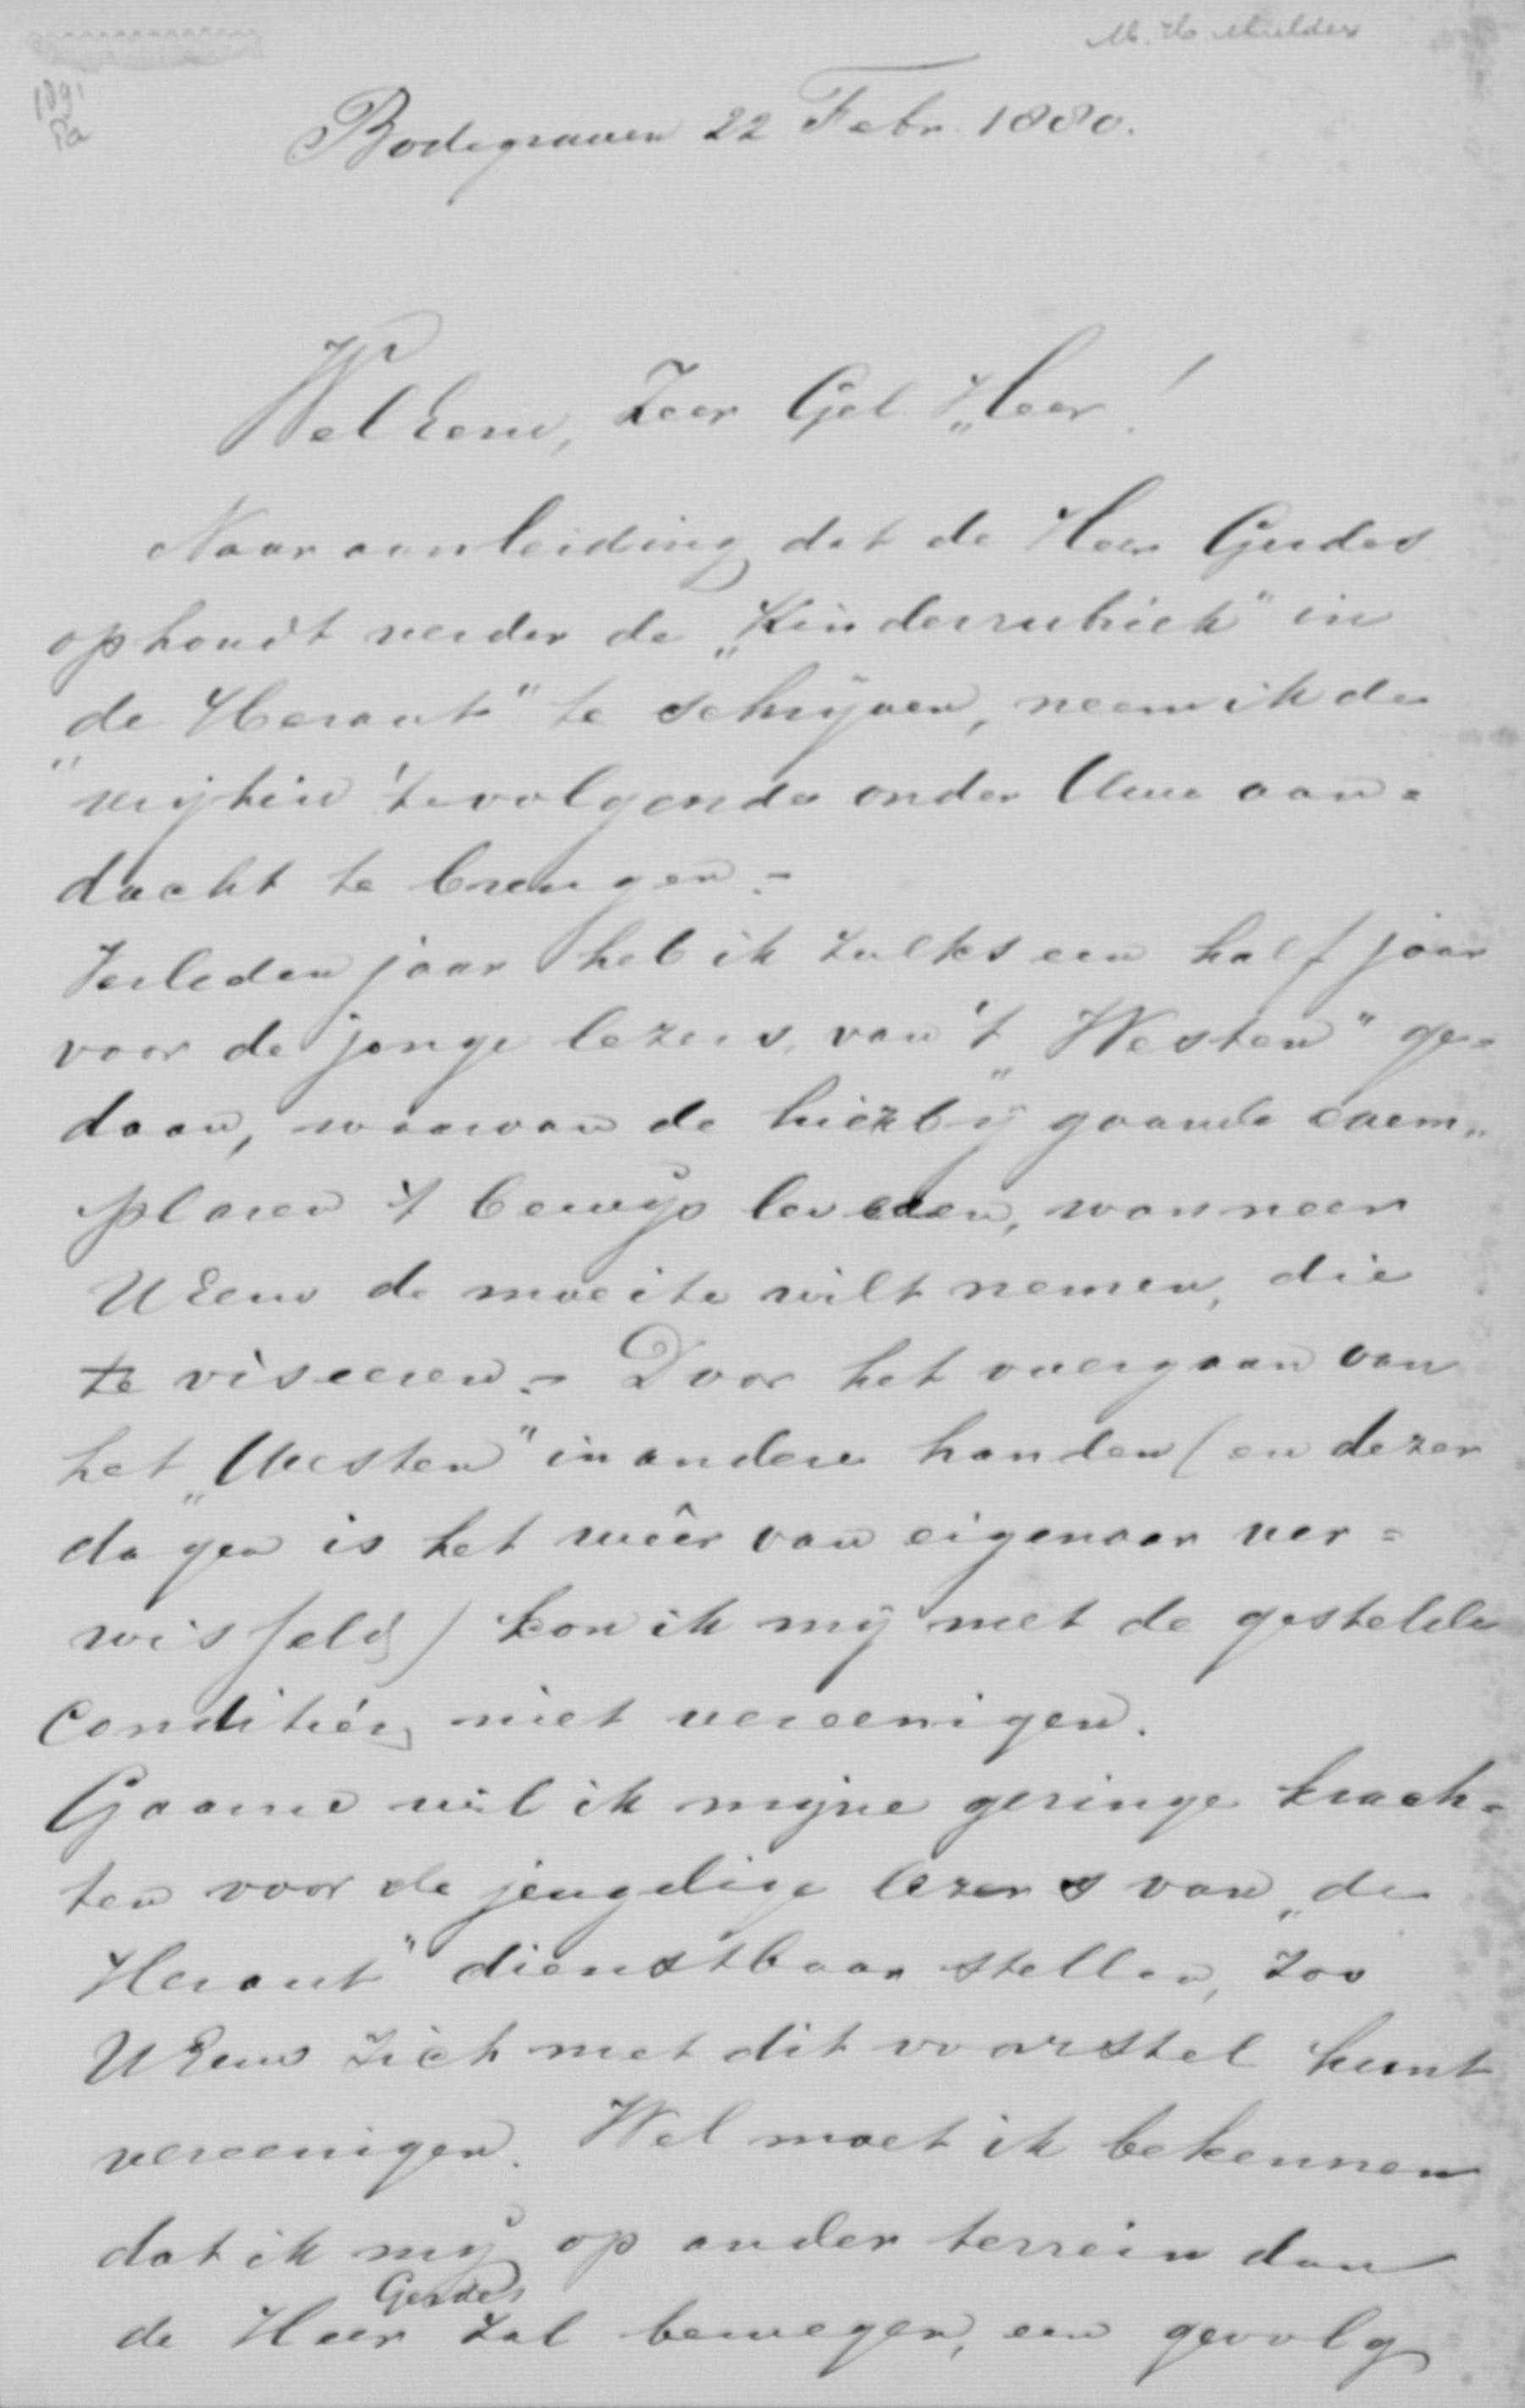 M. H. Mulder
Bodegraven 22 Febr. 1880.
WelEerw, Zeer Gel. Heer!
Naar aanleiding dat de Heer Gerdes
ophoudt verder de „Kinderrubriek" in
„de Heraut" te schrijven, neem ik de
vrijheid 't volgende onder Uwe aan=
dacht te brengen.-
Verleden jaar heb ik zulks een half jaar
voor de jonge lezers van 't „Westen" ge=
daan, waarvan de hierbij gaande exem„
plaren 't bewijs leveren, wanneer
UEerw de moeite wilt nemen, die
te viseeren.- Door het overgaan van
het „Westen" in andere handen (en dezer
dagen is het wêer van eigenaar ver=
wisseld) kon ik mij met de gestelde
Conditiën niet vereenigen.
Gaarne wil ik mijne geringe krach=
ten voor de jeugdige lezers van „de
Heraut" dienstbaar stellen, zoo
UEerw zich met dit voorstel kunt
vereenigen. Wel moet ik bekennen
dat ik mij op ander terrein dan
de Heer Gerdes zal bewegen, een gevolg